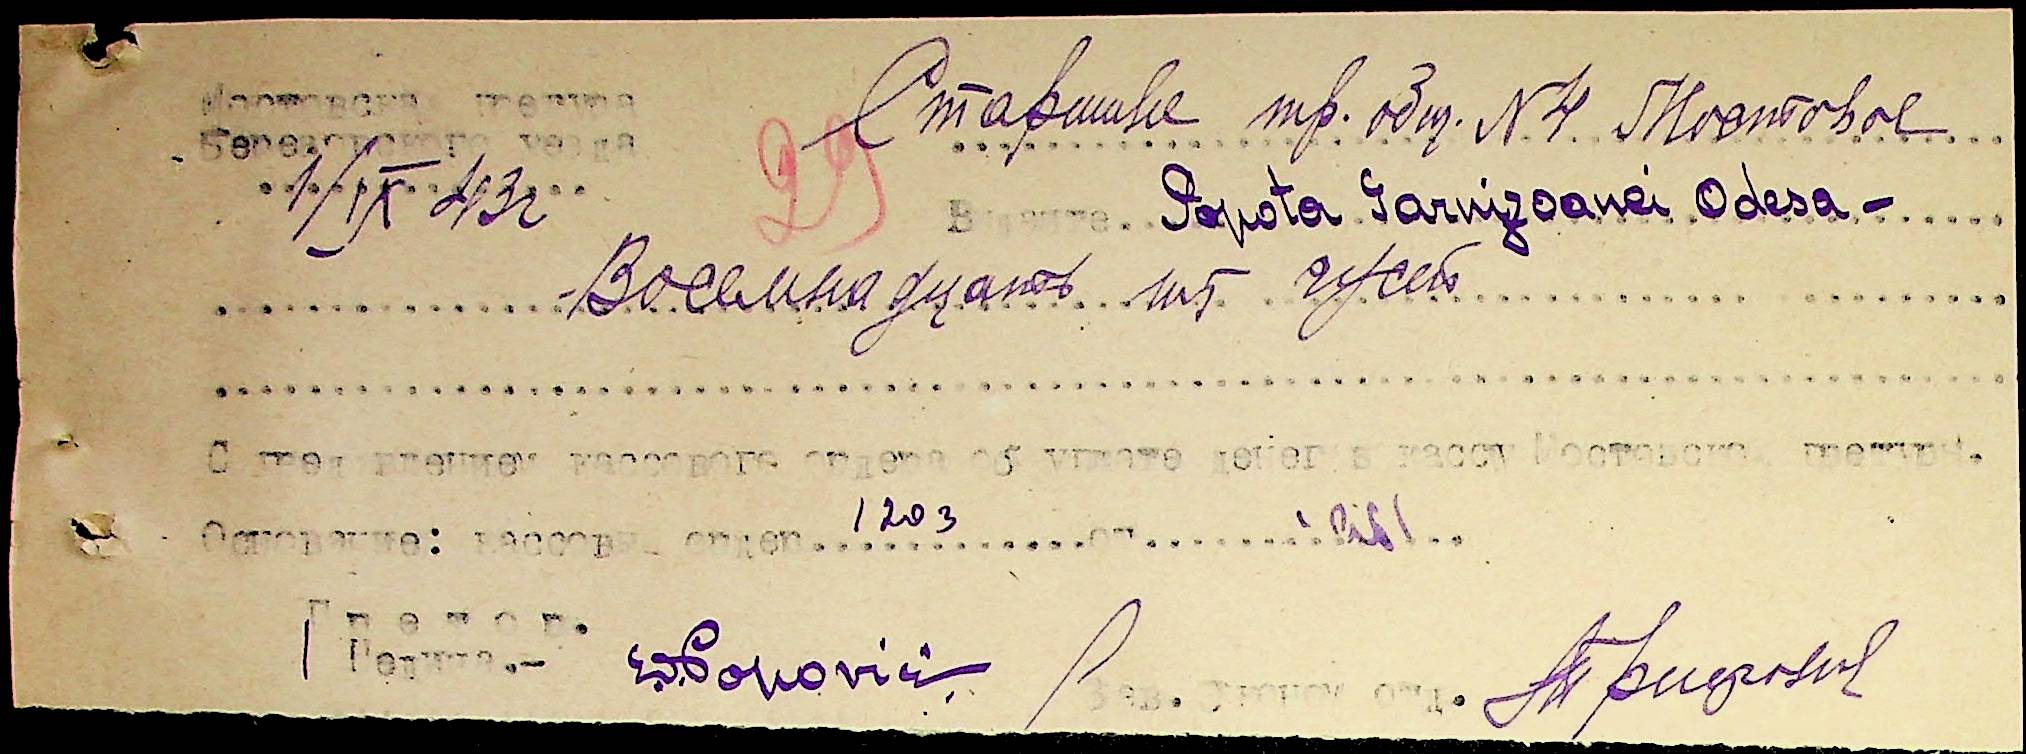 Мостовская претура
Березовского уезда
1/IX 43г
29
Старшине тр. общ. N 4 Мостовое
Выдайте. Popota Garnizoanei Odesa -
- Восемнадцать шт гусей
С пред'явлением кассового ордера об уплате денег в кассу Мостовской претуры.
Основание: кассовый ордер 1203 от
Претор.
Гелича.-
Popovici
Зав. Хозком отд.